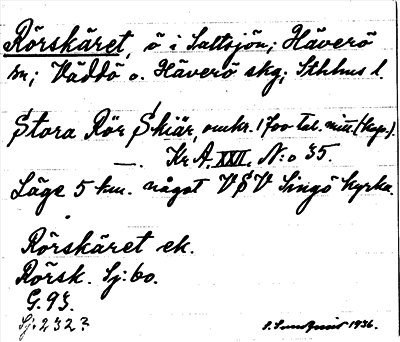 Rörskäret, ö i Saltsjön; Häverö
sn; Väddö o. Häverö skg; Sthlms l.
Stora Rör Skiär, omkr. 1700 tal. mitt (kop.).
— Kr. A. XXII, N:o 35.
Läge 5 km. något VSV Singö kyrka.
Rörskäret ek.
Rörsk. Sj: 60.
G. 93.
Sj: 232?
1936.